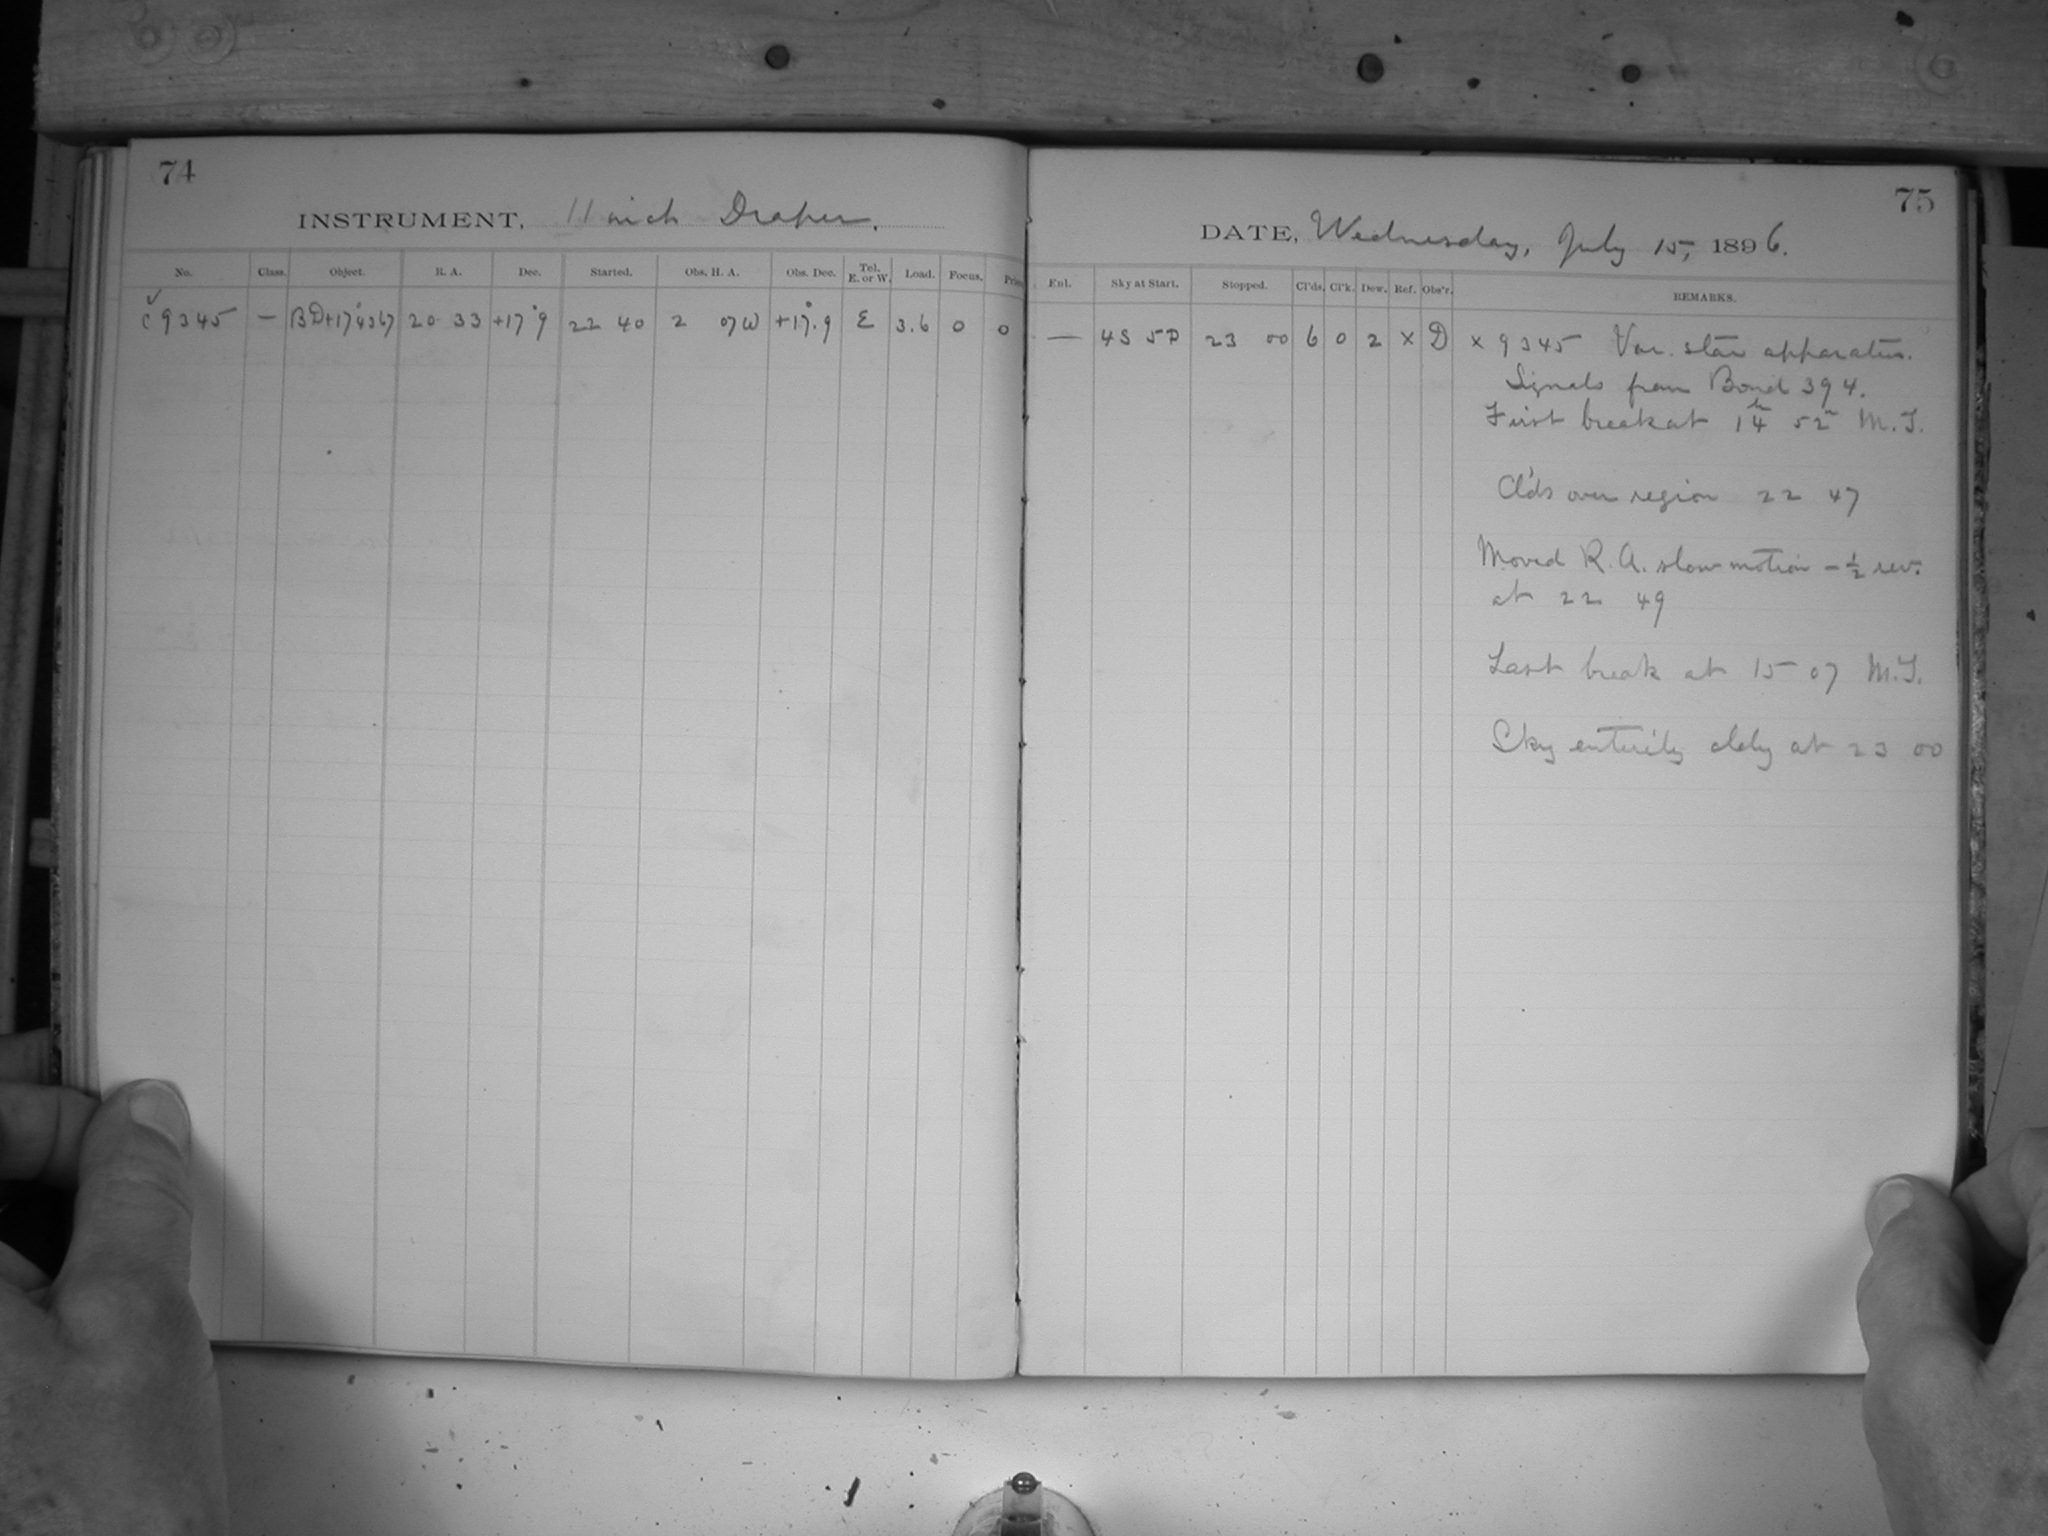 74
INSTRUMENT, 11 inch Draper.
No. Class. Object. R. A. Dec. Started. Obs. H. A. Obs. Dec. Tel. E. or W. Load. Focus. Prism
C 9345 — BD+17°4367 20 33 +17°.9 22 40 2 07W +17°.9 E 3.6 0 0
75
DATE, Wednesday, July 15, 1896.
Enl. Sky at Start. Stopped. Cl'ds. Cl'k. Dew. Ref. Obs'r. REMARKS.
— 4S 5P 23 00 6 0 2 x D x 9345 Var. star apparatus.
Signals from Bond 394.
First break at 14h 52m M.T.
Cl'ds over region 22 47
Moved R.A. slow motion – ½ rev.
at 22 49
Last break at 15 07 M.T.
Sky entirely cldy at 23 00